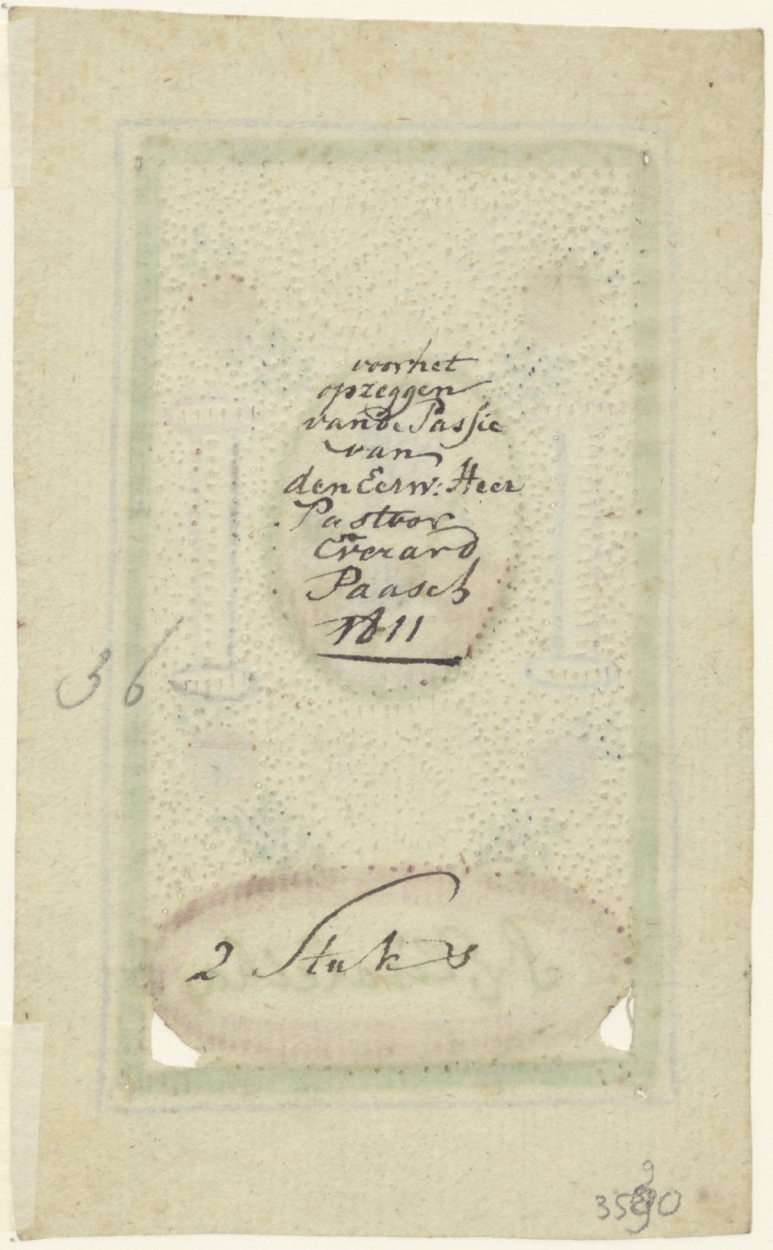 voor het
opzeggen
van de Passie
van
den Eerw: Heer
Pastoor
Everard
Paasch
1811
36
2 Stuks